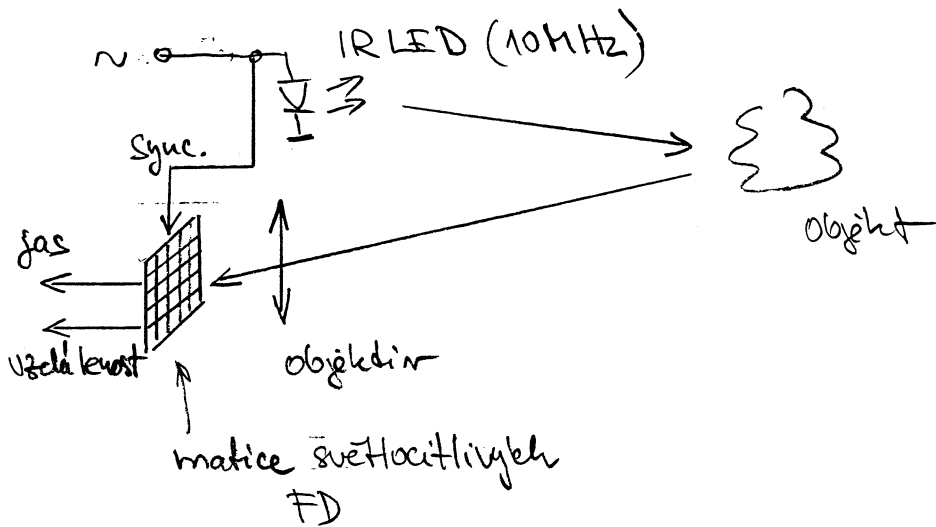 ~ IR LED (10MHz)
sync.
objekt
jas
vzdálenost
objektiv
matice světlocitlivých
FD